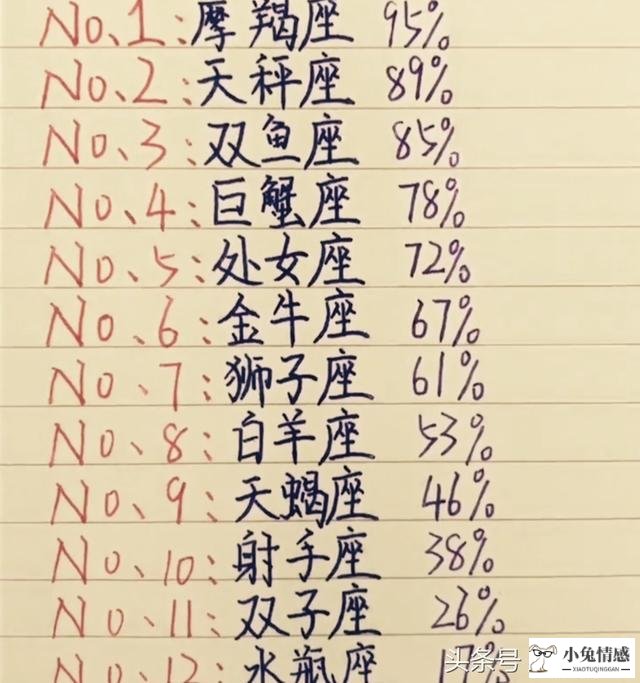 No.1:摩羯座 95%
No、2:天秤座 89%
No、3:双鱼座 85%
No、4:巨蟹座 78%
No、5:处女座 72%
No、6:金牛座 67%
No、7:狮子座 61%
No、8:白羊座 53%
No、9:天蝎座 46%
No、10:射手座 38%
No、11:双子座 26%
No、12:水瓶座 17%
头条号
小兔情感
XIAOTUQINGGAN